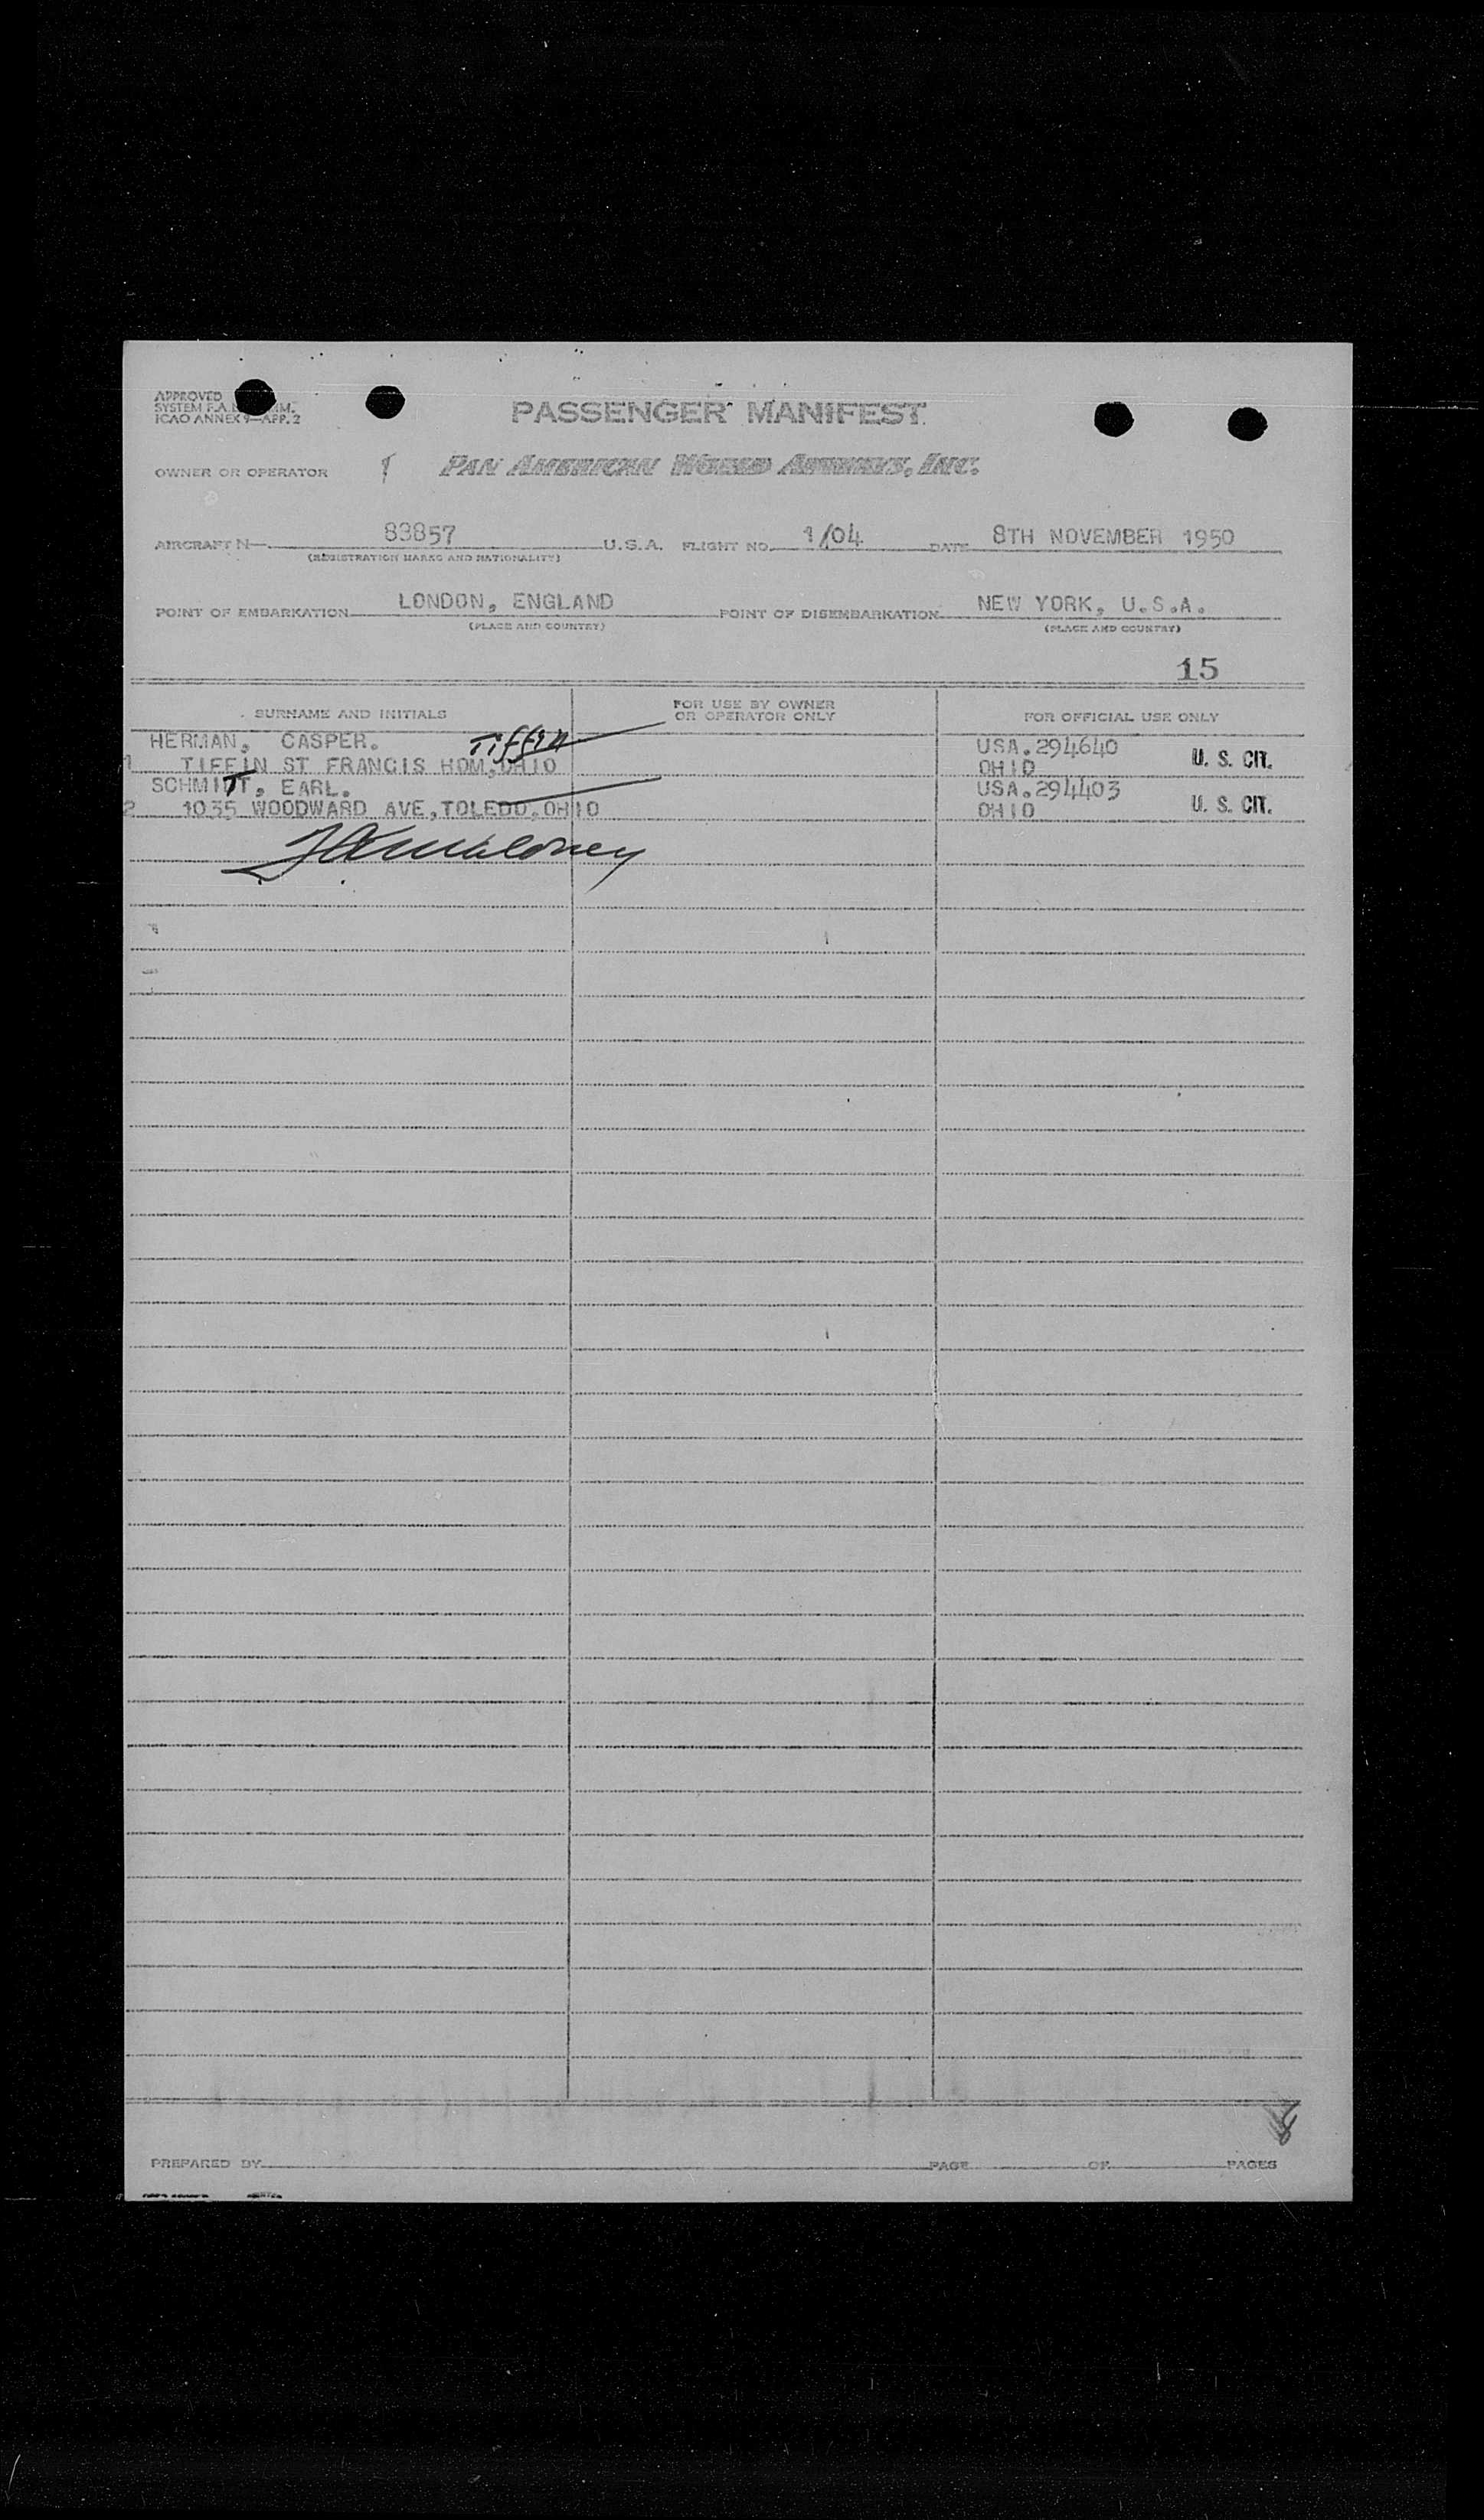 APPROVED
SYSTEM F.A.L. COMM.
ICAO ANNEX 9—APP. 2
PASSENGER MANIFEST
OWNER OR OPERATOR PAN AMERICAN WORLD AIRWAYS, INC.
AIRCRAFT N— 83857 U.S.A. FLIGHT NO. 1/04 DATE 8TH NOVEMBER 1950
(REGISTRATION MARKS AND NATIONALITY)
POINT OF EMBARKATION LONDON, ENGLAND POINT OF DISEMBARKATION NEW YORK, U.S.A.
(PLACE AND COUNTRY) (PLACE AND COUNTRY)
15
SURNAME AND INITIALS FOR USE BY OWNER OR OPERATOR ONLY FOR OFFICIAL USE ONLY
HERMAN, CASPER. Tiffin USA.294640
1 TIFFIN ST FRANCIS HOM,OHIO OHIO U. S. CIT.
SCHMIDT, EARL. USA.294403
2 1035 WOODWARD AVE,TOLEDO,OHIO OHIO U. S. CIT.
8
PREPARED BY PAGE OF PAGES